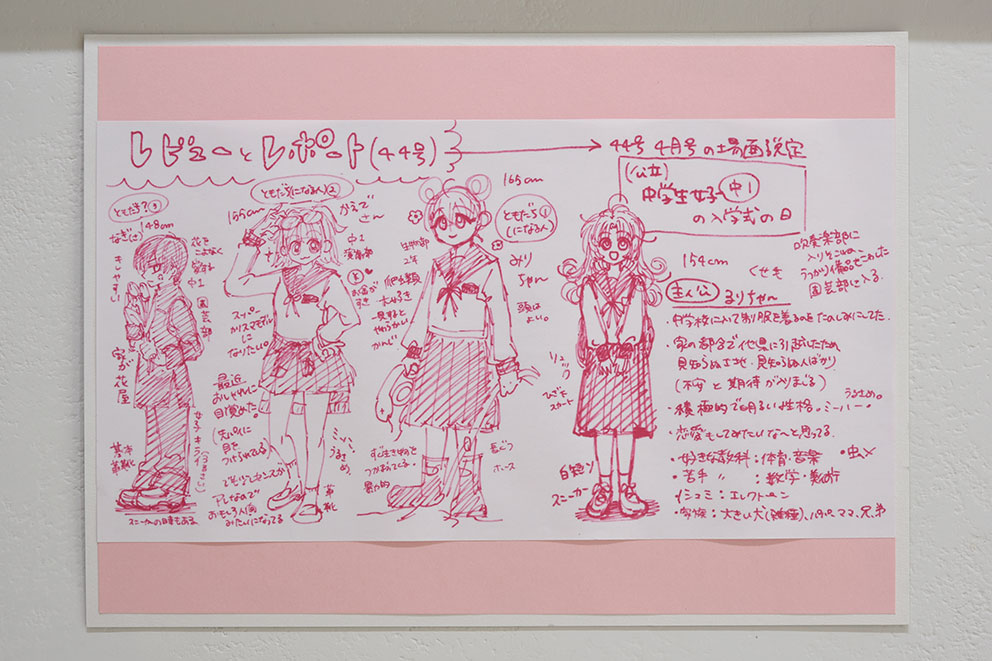 レビューとレポート(44号)
44号 4月号の場画設定
(公立)
中学生女子 中1
の入学式の日
ともだち?③
148cm
なぎ(さ)
花を
こよなく
愛する
中1
園芸部
家が花屋
スニーカーの日もある
ともだち(になる人)②
155cm
かえで
さん
中1
演劇部
お金が
すき
スーパー
カリスマモデルに
なりたい。
最近
おしゃれに
目覚めた。
(先パイに
目を
つけられてる)
でも少しセンスが
アレなので
おもしろ人間
みたいになってる
ミーハー
うるさめ。
革靴
165cm
ともだち①
(になる人)
みり
ちゃん
頭は
よい。
生物部
2年
爬虫類
大好き
一見すると
やわらかい
かんじ
すぐ生きものを
つかまえてくる。
長ぐつ
154cm
くせ毛
主人公
まりちゃん
ひざ下
スカート
白短ソ
スニーカー
吹奏楽部に
入りそこねて
うっかり
園芸部に入る。
・中学校に入って制服を着るのをたのしみにしてた。
・家の都合で他県に引越したため
見知らぬ土地・見知らぬ人ばかり
(不安と期待が入りまじる)
・積極的で明るい性格。ミーハー。
うるさめ。
・恋愛もしてみたいなぁと思ってる。
・好きな教科:体育・音楽
・虫×
・苦手 〃 :数学・美術
・家族:大きい犬(雑種)、パパ、ママ、兄、弟